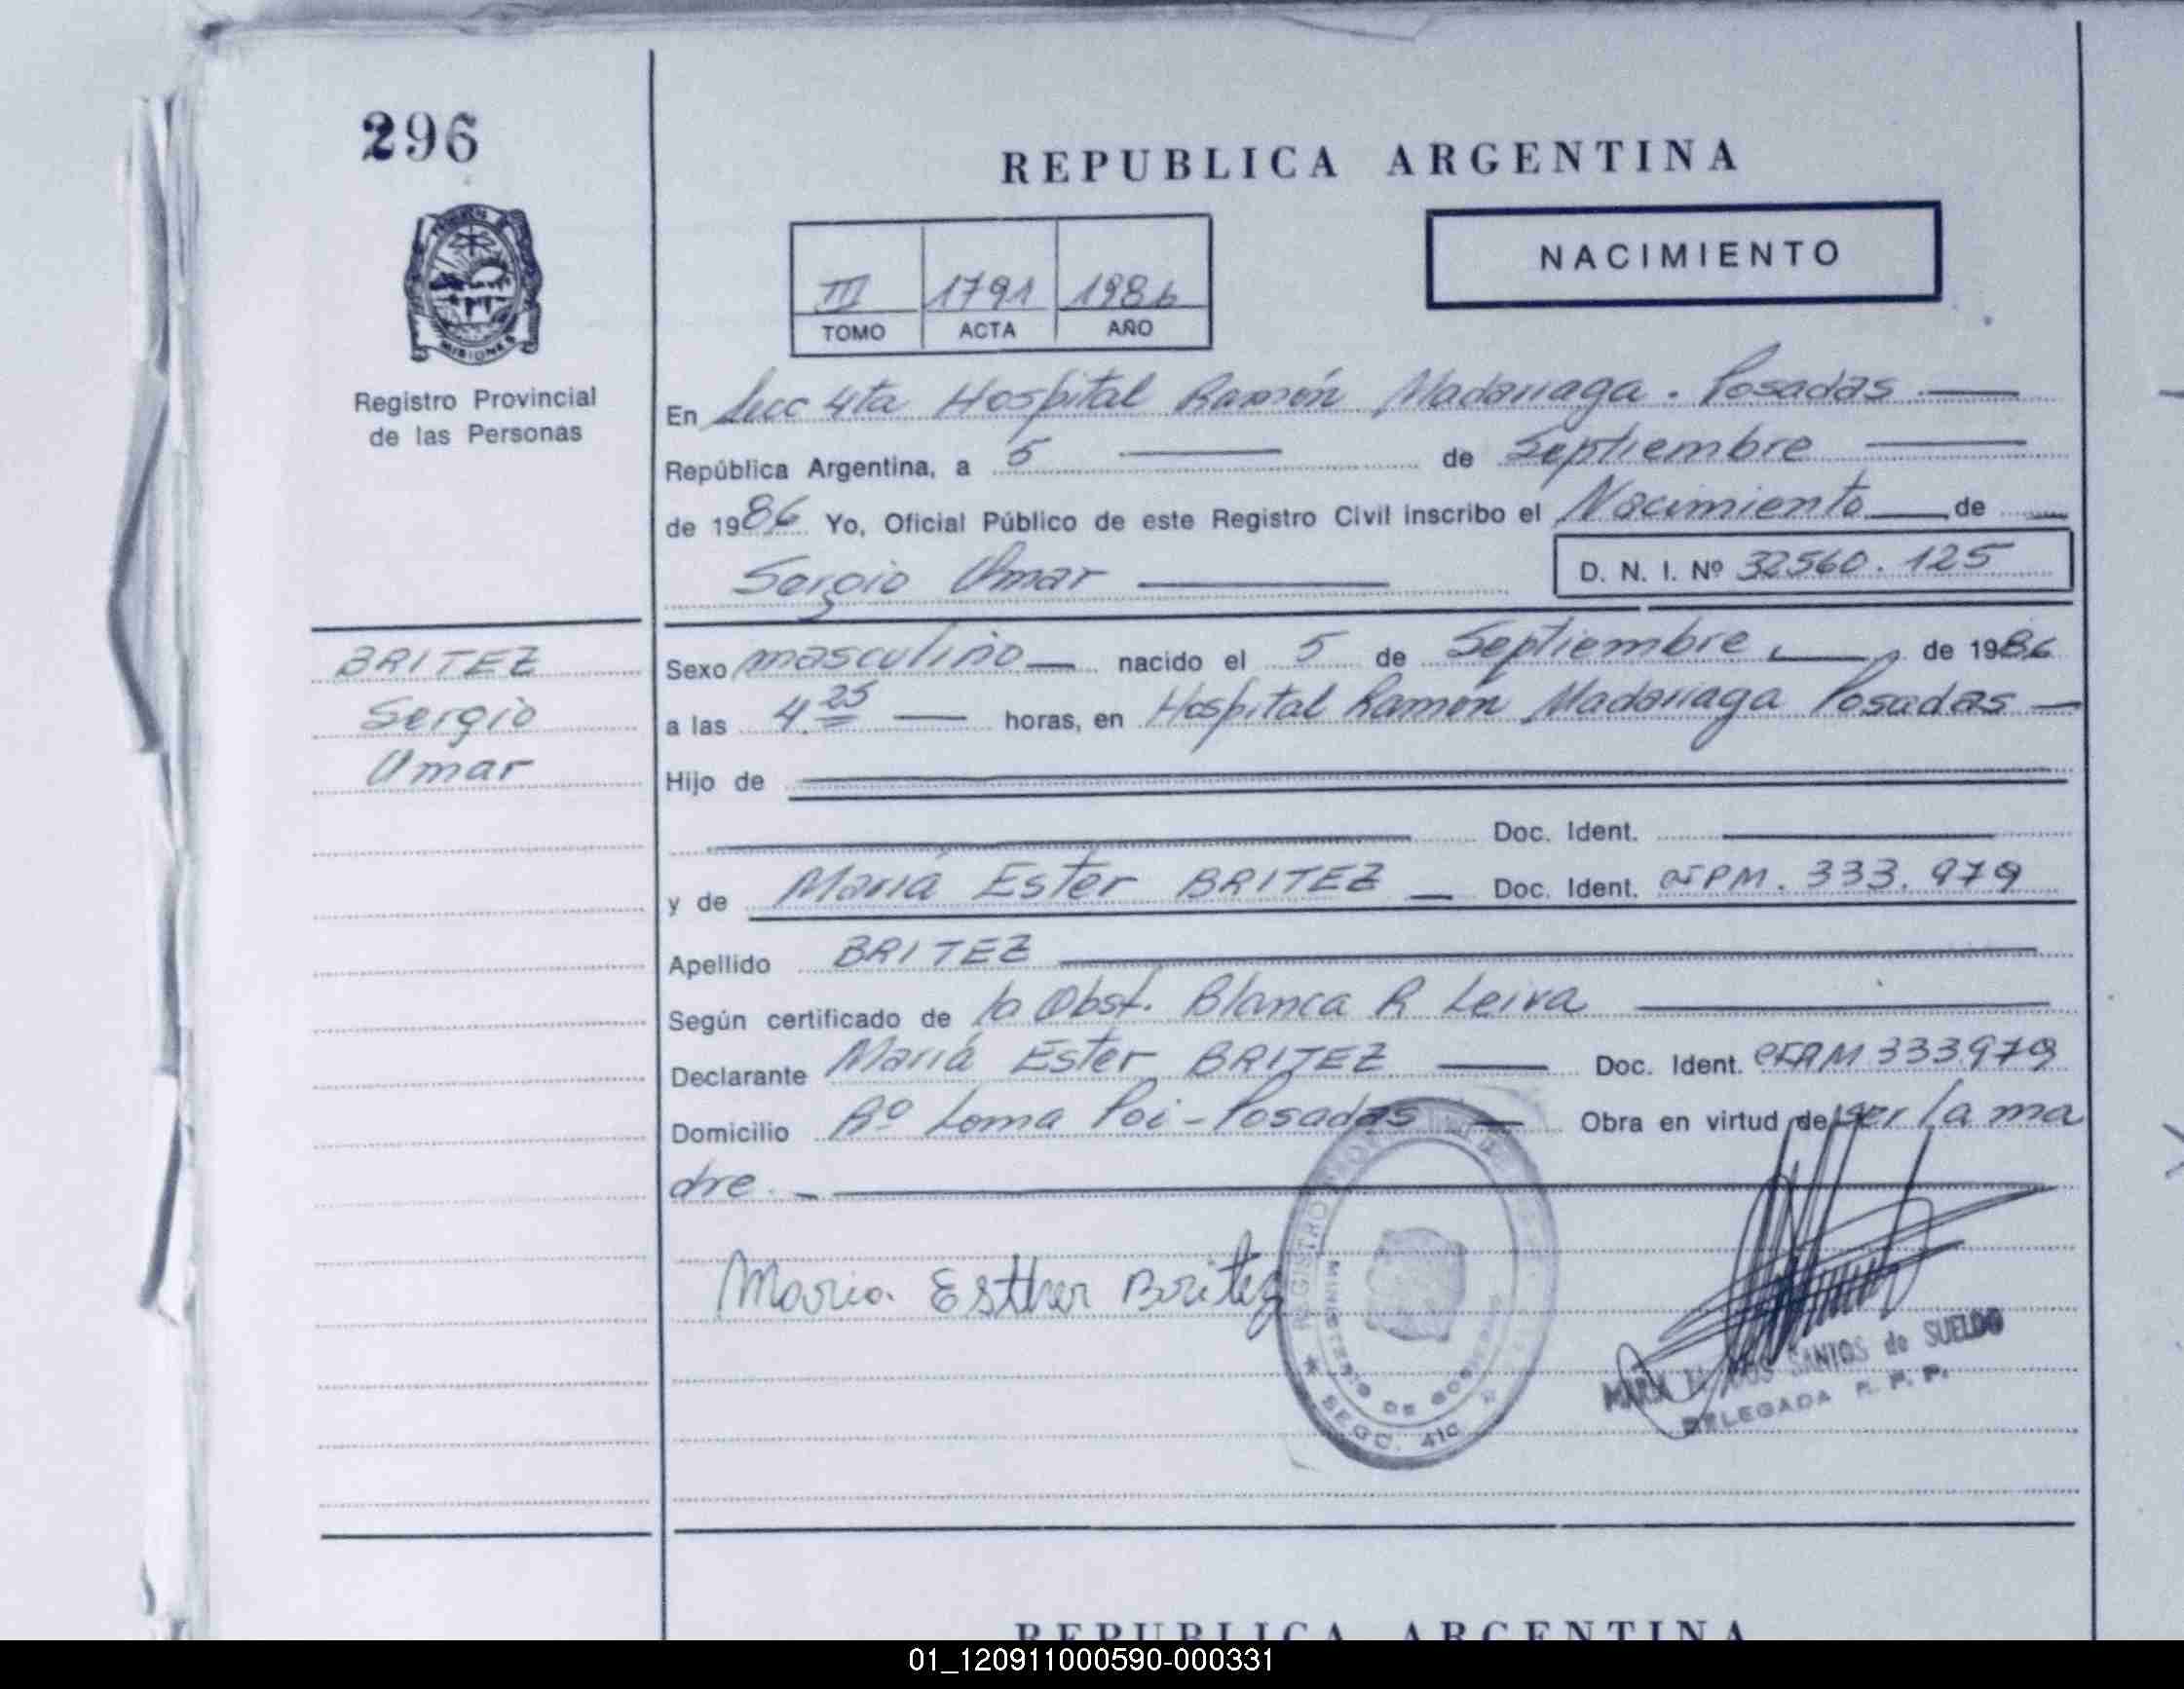 296
REPUBLICA ARGENTINA
NACIMIENTO
III 1791 1986
TOMO ACTA AÑO
MISIONES
Registro Provincial
de las Personas
En Secc 4ta Hospital Ramón Madariaga. Posadas
República Argentina, a 5 de Septiembre
de 1986 Yo, Oficial Público de este Registro Civil inscribo el Nacimiento de
Sergio Omar D. N. I. Nº 32560.125
BRITEZ
Sergio
Omar
Sexo masculino nacido el 5 de Septiembre de 1986
a las 4.25 horas, en Hospital Ramón Madariaga Posadas
Hijo de
Doc. Ident.
y de María Ester BRITEZ Doc. Ident. CIPM. 333.979
Apellido BRITEZ
Según certificado de la Obst. Blanca R Leiva
Declarante María Ester BRITEZ Doc. Ident. 333979
Domicilio Bº Loma Poi - Posadas Obra en virtud de ser la ma
dre.
Maria Esther Britez
REGISTRO
MINISTERIO DE GOBIERNO
SECC. 4ta
DOS SANTOS de SUELDO
DELEGADA R. P. P.
REPUBLICA ARGENTINA
01_120911000590-000331